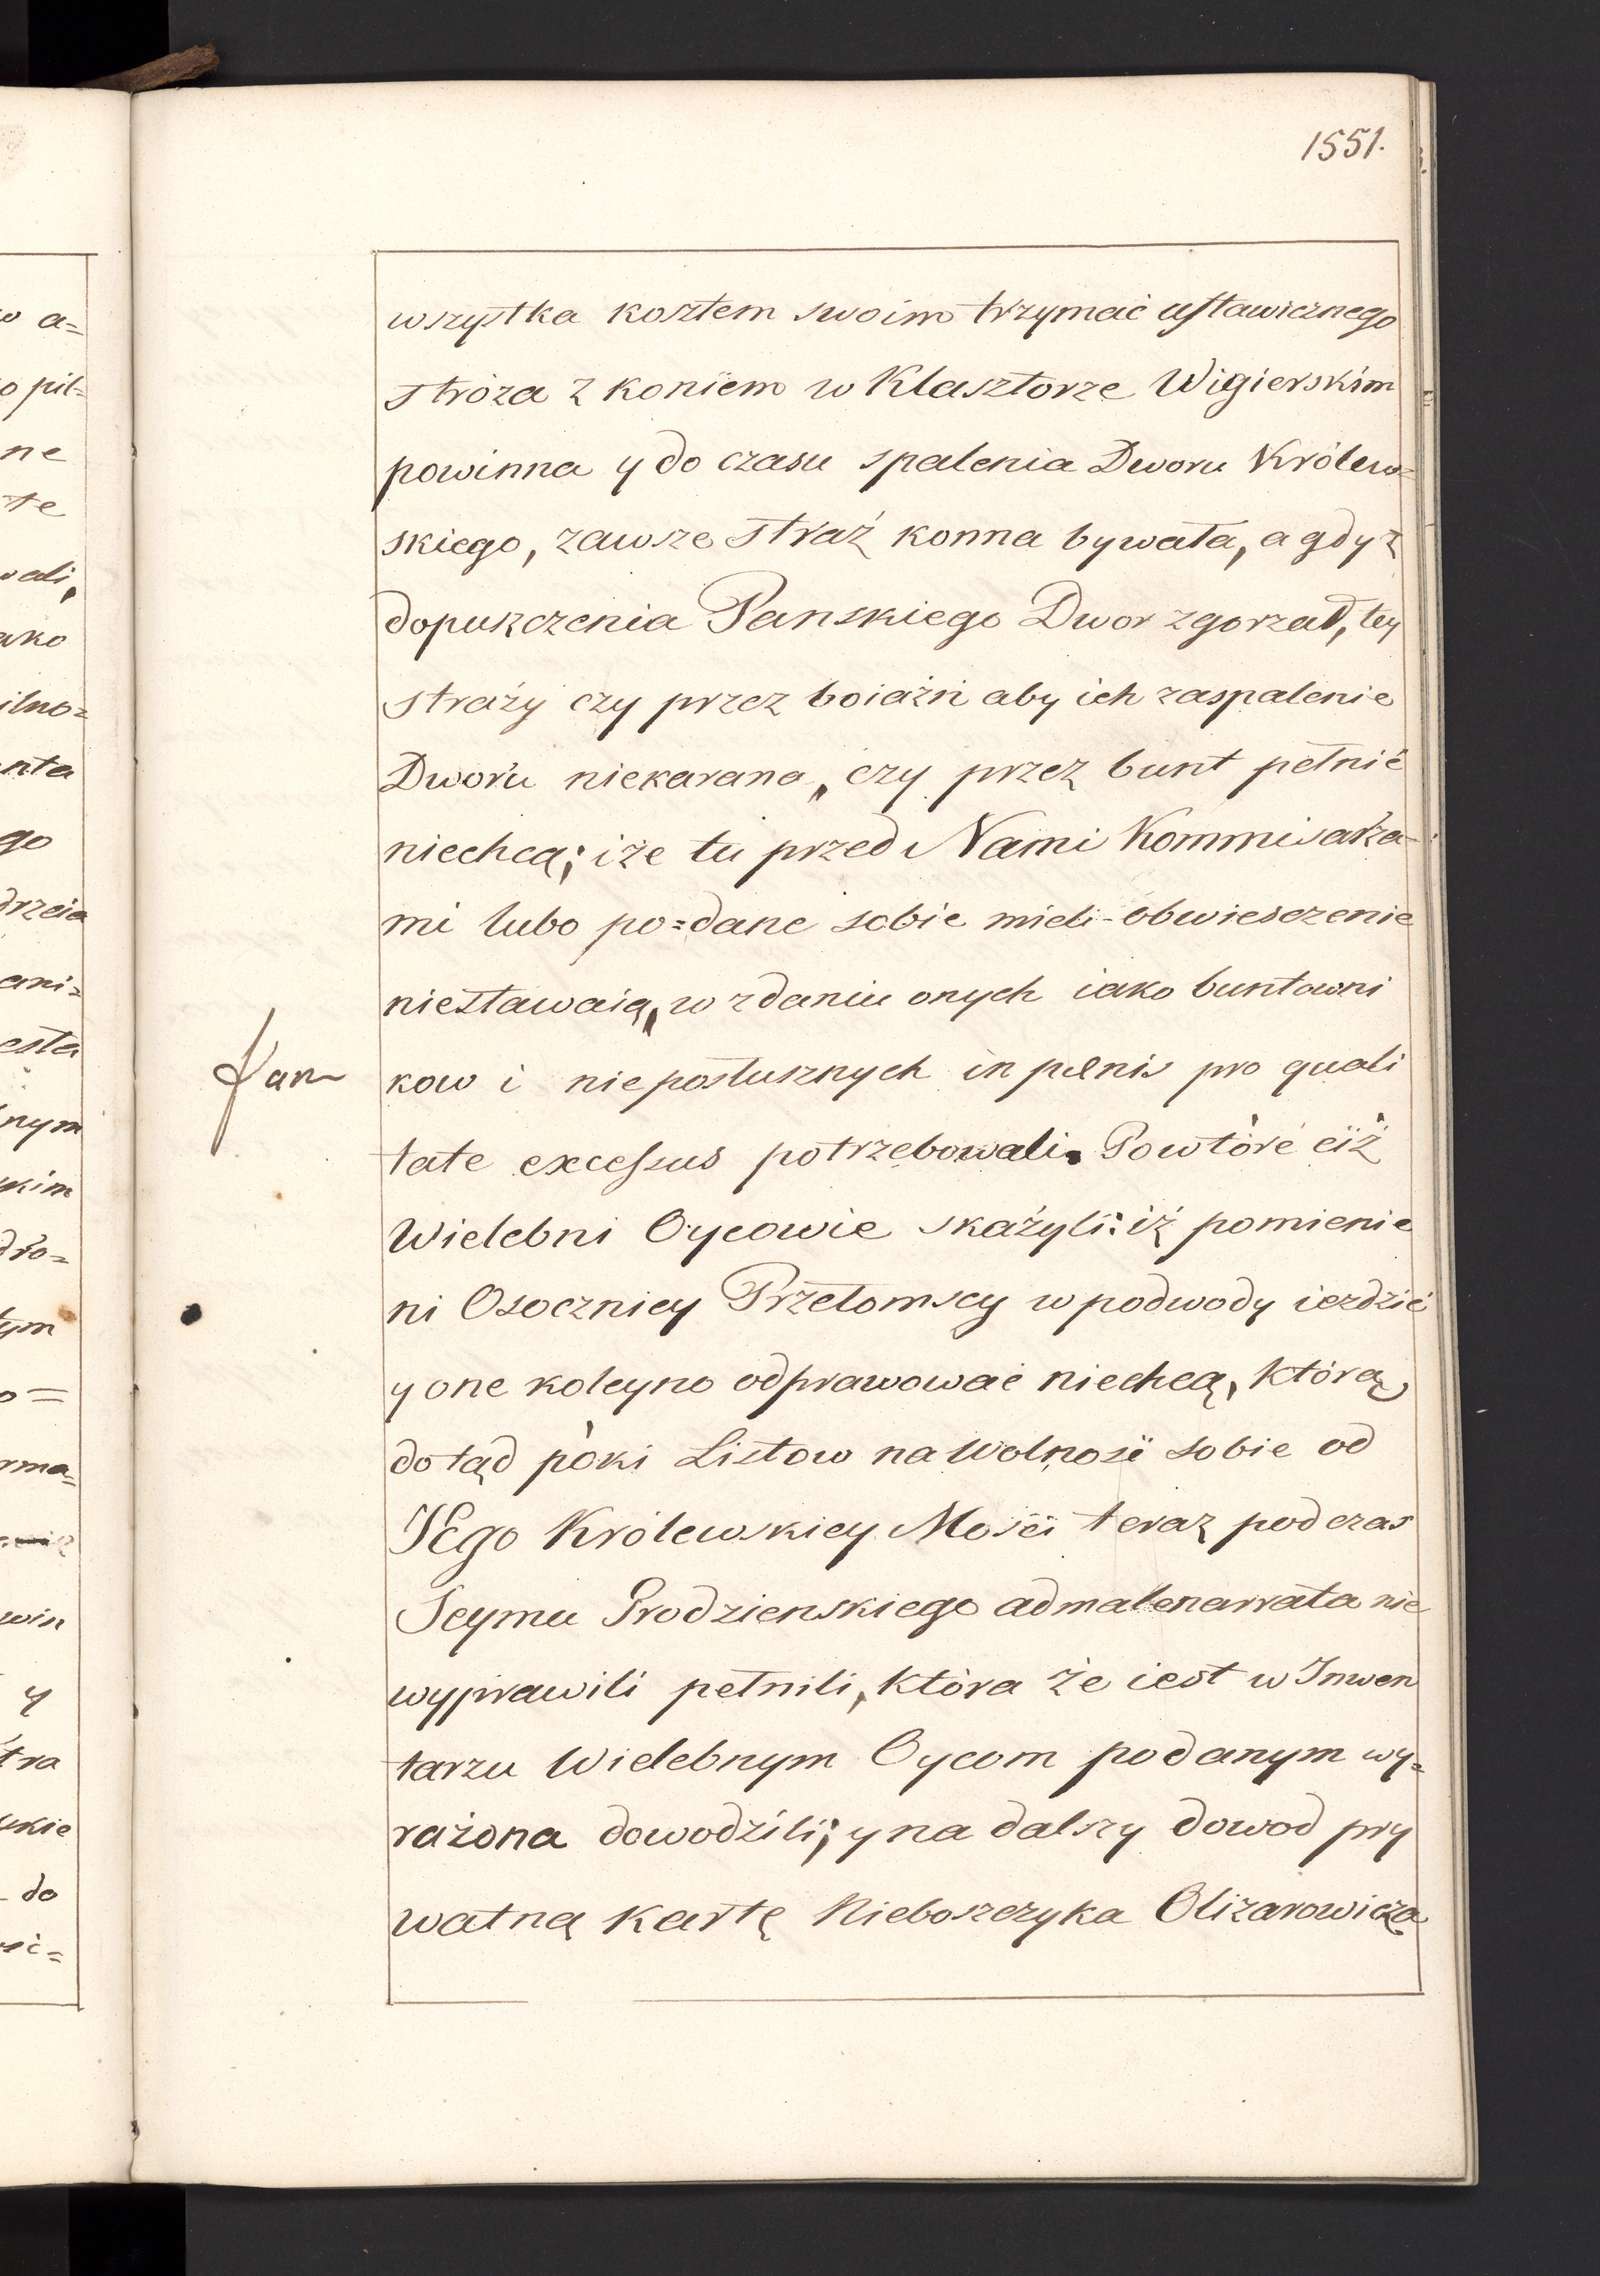 1551.
wszystka kosztem swoim trzymać ustawicznego
stróża z koniem w Klasztorze Wigierskim
powinna y do czasu spalenia Dworu Królew=
skiego, zawsze straż konna bywała, a gdy z
dopuszczenia Panskiego Dwor zgorzał, tey
straży czy przez boiaźń aby ich zaspalenie
Dworu niekarana, czy przez bunt pełnić
niechcą; iże tu przed Nami Kommisarza-
mi lubo po=dane sobie mieli obwiesczenie
niestawaią, w zdaniu onych iako buntowni
kow i nieposłusznych in pœnis pro quali
tate excessus potrzebowali. Powtóre ciż
Wielebni Oycowie skażyli: iż pomienie
ni Osocznicy Przełomscy w podwody iezdzić
y one koleyno odprawować niechcą, którą
dotąd póki Listow na Wolność sobie od
JEgo Królewskiey Mości teraz podczas
Seymu Grodzienskiego admalenarrata nie
wyprawili pełnili, która że iest w Inwen
tarzu Wielebnym Oycom podanym wy=
rażona dowodzili; y na dalszy dowod pry
watną kartę Nieboszczyka Olizarowicza
w a=
o pil=
ne
te
wali,
ako
ilno=
nta
go
drzcia
ani=
esta
nym
skim
dro=
tym
o=
rma=
win
y
tra
skie
do